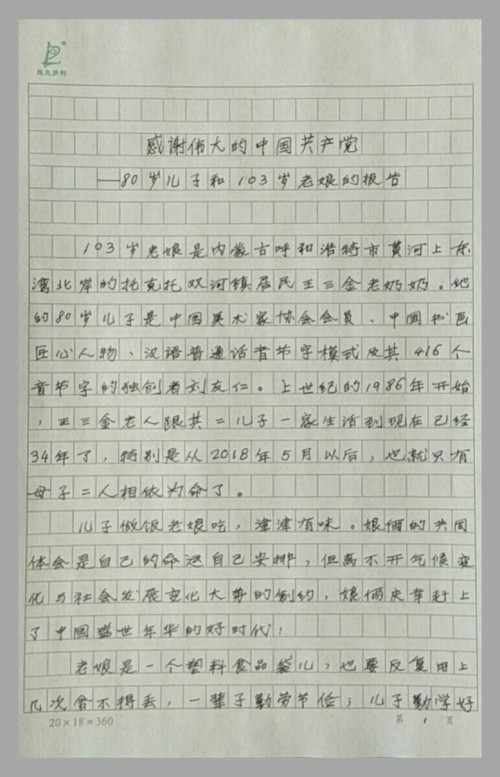 感谢伟大的中国共产党
——80岁儿子和103岁老娘的报告
103岁老娘是内蒙古呼和浩特市黄河上东
湾北岸的托克托双河镇居民王三金老奶奶。她
的80岁儿子是中国美术家协会会员、中国书画
匠心人物、汉语普通话音节字模式及其416个
音节字的独创者刘友仁。上世纪的1986年开始
，王三金老人跟其二儿子一家生活到现在已经
34年了，特别是从2018年5月以后，也就只有
母子二人相依为命了。
儿子做饭老娘吃，津津有味。娘俩的共同
体会是自己的命运自己安排，但离不开气候变
化与社会发展变化大势的制约，娘俩庆幸赶上
了中国盛世年华的好时代！
老娘是一个塑料食品袋儿，也要反复用上
几次舍不得丢，一辈子勤劳节俭；儿子勤学好
20×18=360
第1页